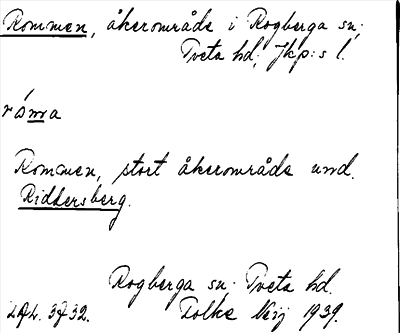 Rommen, åkerområde i Rogberga sn;
Tveta hd; Jkp:s l.
Rommen, stort åkerområde und.
Riddersberg.
Rogberga sn; Tveta hd.
Folke 1939.